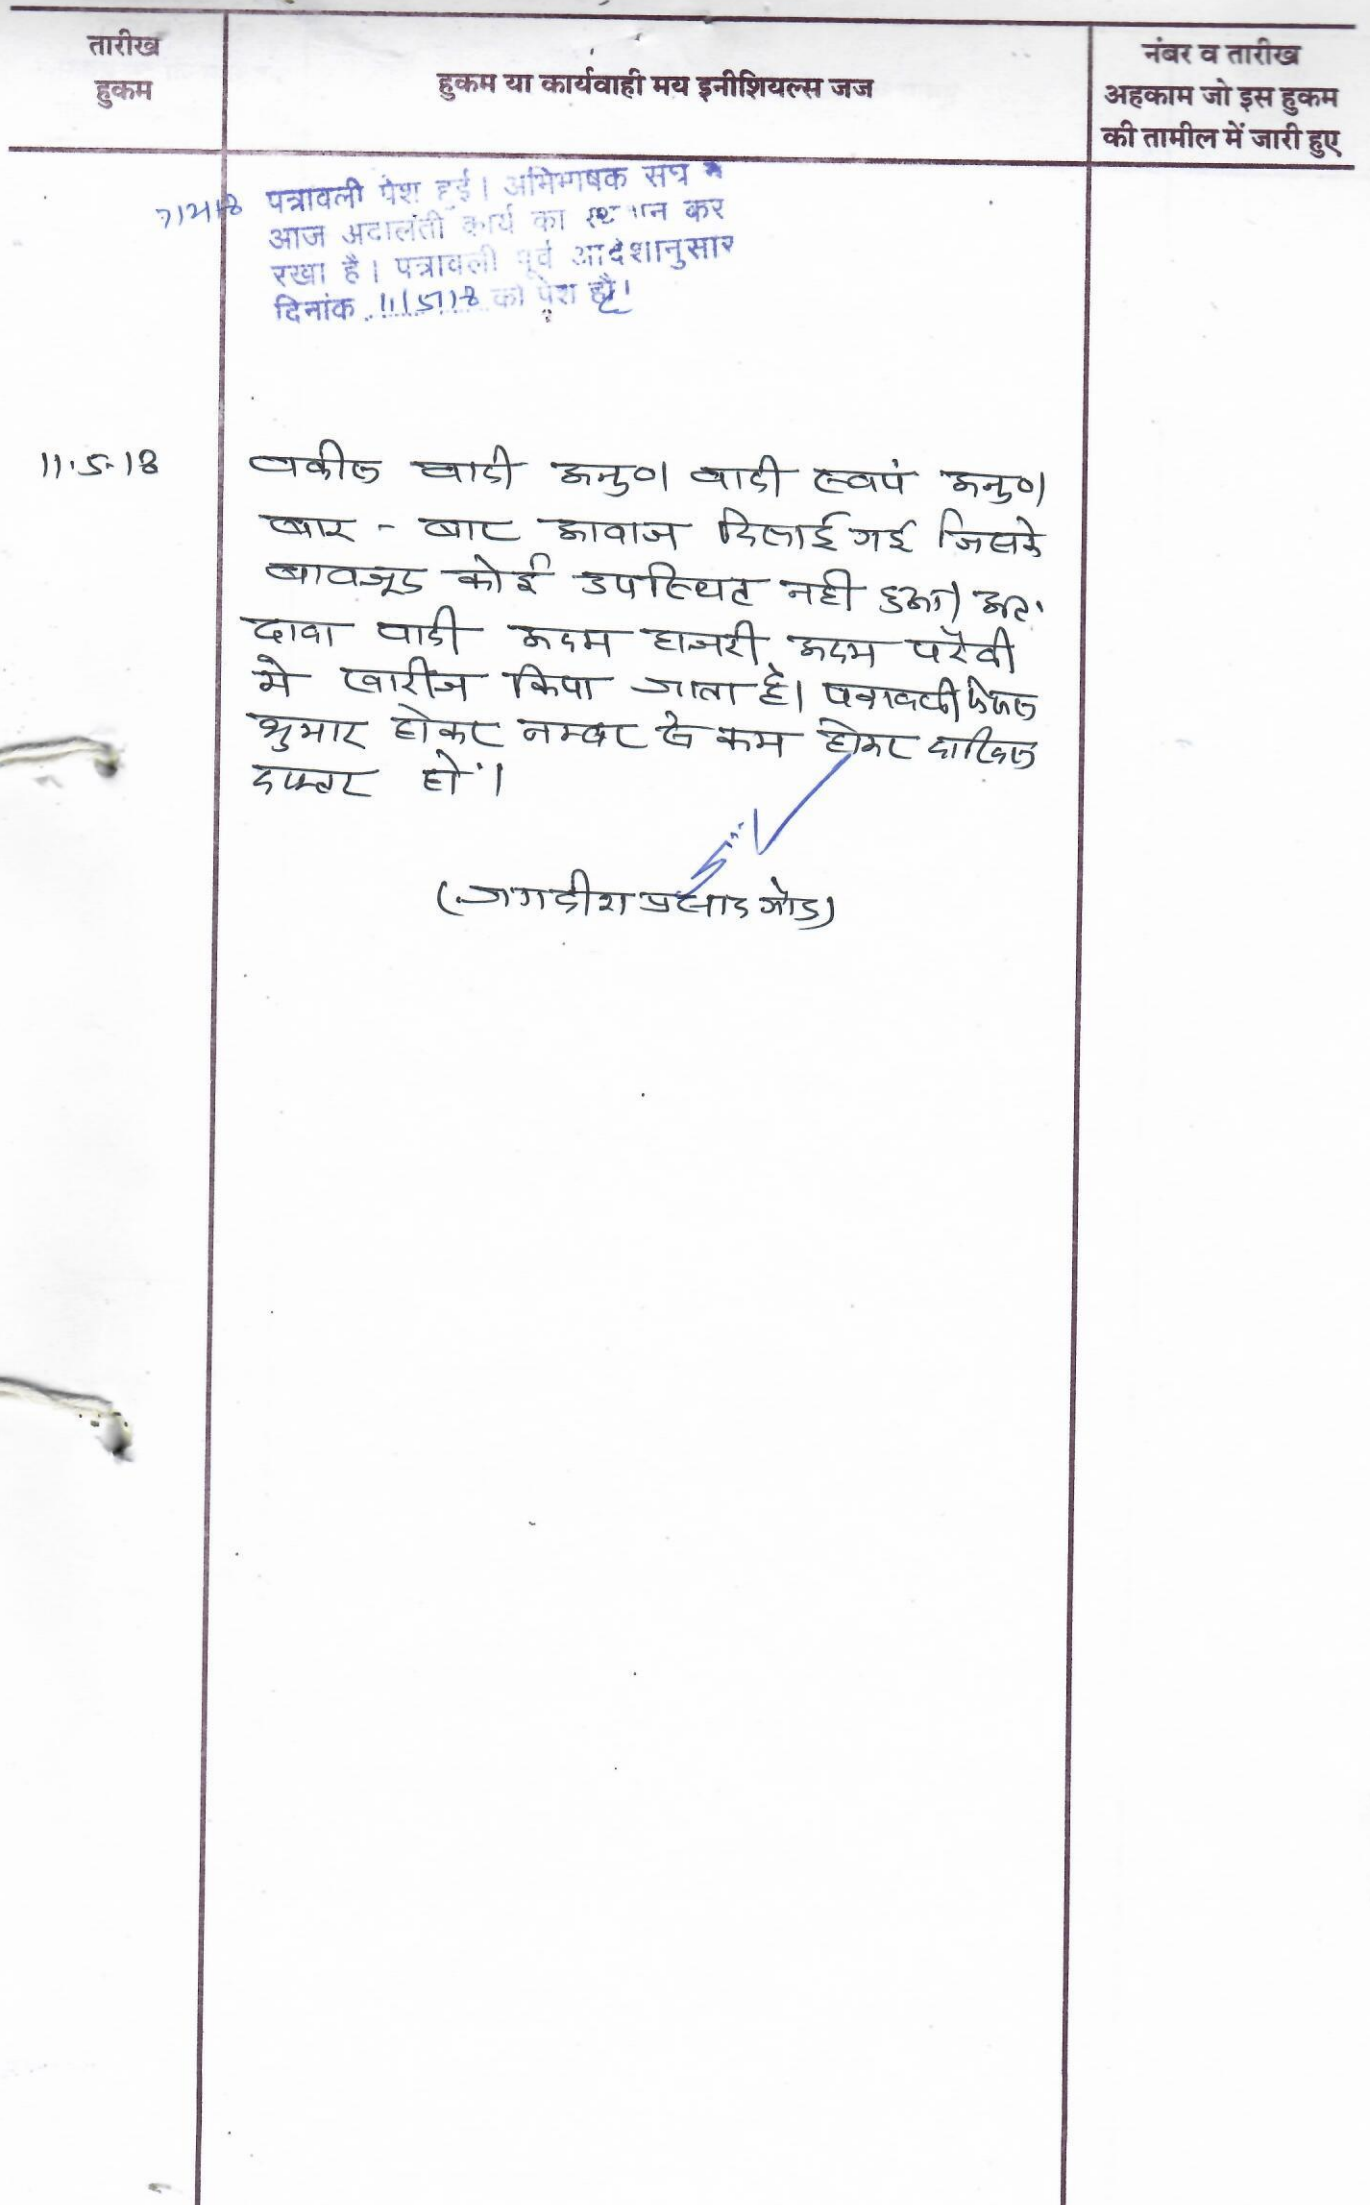 तारीख
हुकम
हुकम या कार्यवाही मय इनीशियल्स जज
नंबर व तारीख
अहकाम जो इस हुकम
की तामील में जारी हुए
पत्रावली पेश हुई। अभिभाषक संघ ने
आज अदालती कार्य का स्थगन कर
रखा है। पत्रावली पूर्व आदेशानुसार
दिनांक 11/5/18 को पेश हो।
11.5.18
वकील वादी अनु०। वादी स्वयं अनु०।
बार - बार आवाज दिलाई गई जिसके
बावजूद कोई उपस्थित नही हुआ। अतः
दावा वादी अदम हाजरी अदम पैरवी
मे खारीज किया जाता है। पत्रावली फैसल
शुमार होकर नम्बर से कम होकर दाखिल
दफ्तर हो।
(जगदीश प्रसाद गौड)